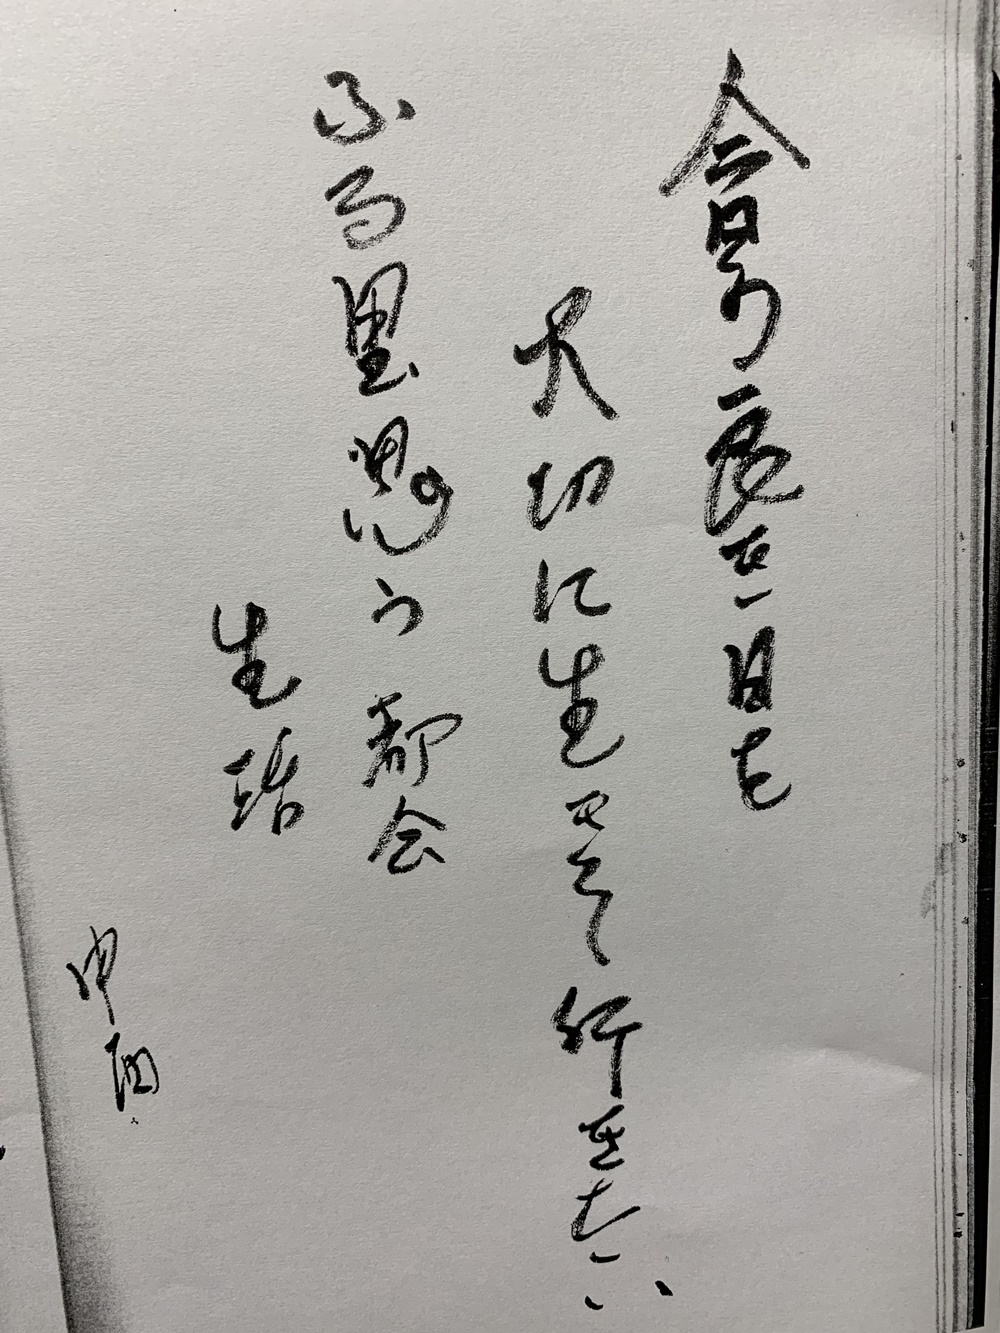 今日の良き一日を
大切に生きて行きたい
ふる里思う都会
生活